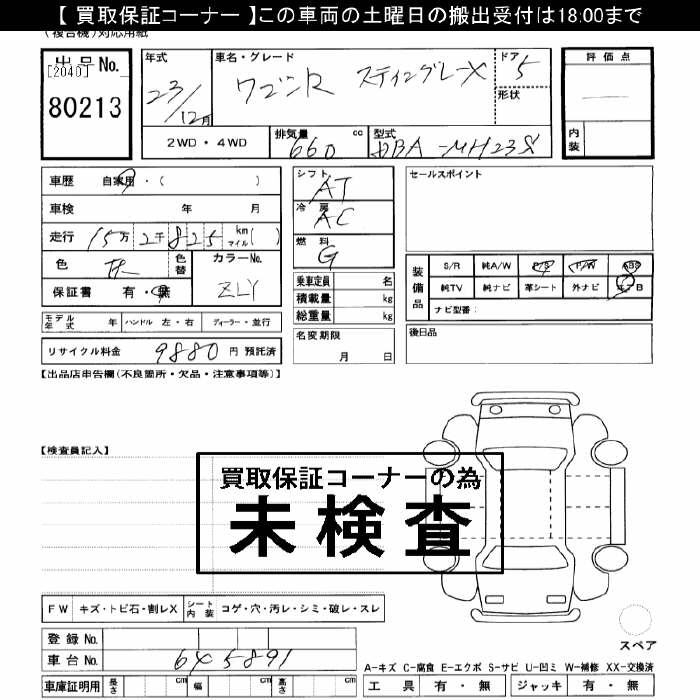 【 買取保証コーナー 】この車両の土曜日の搬出受付は18:00まで
(複合機)対応用紙
出品No.
[2040]
80213
年式
23/12月
車名・グレード
ワゴンR スティングレーX
ドア
5
形状
評価点
内装
2WD・4WD
排気量
660 cc
型式
DBA-MH23S
車歴 自家用・( )
車検 年 月
走行 15万 2千 825 km マイル( )
色
色替
カラーNo.
ZLY
保証書 有・無
モデル年式 年 ハンドル 左・右 ディーラー・並行
リサイクル料金 9880 円 預託済
シフト
AT
冷房
AC
燃料
G
乗車定員 名
積載量 kg
総重量 kg
名変期限
月 日
セールスポイント
装備品
S/R 純A/W P/S P/W ABS
純TV 純ナビ 革シート 外ナビ エアB
ナビ型番:
後日品
【出品店申告欄(不良箇所・欠品・注意事項等)】
【検査員記入】
買取保証コーナーの為
未検査
FW キズ・トビ石・割レX
シート内装 コゲ・穴・汚レ・シミ・破レ・スレ
登録No.
車台No. 645891
車庫証明用 長さ cm 幅 cm 高さ cm
スペア
A-キズ C-腐食 E-エクボ S-サビ U-凹ミ W-補修 XX-交換済
工具 有・無 ジャッキ 有・無